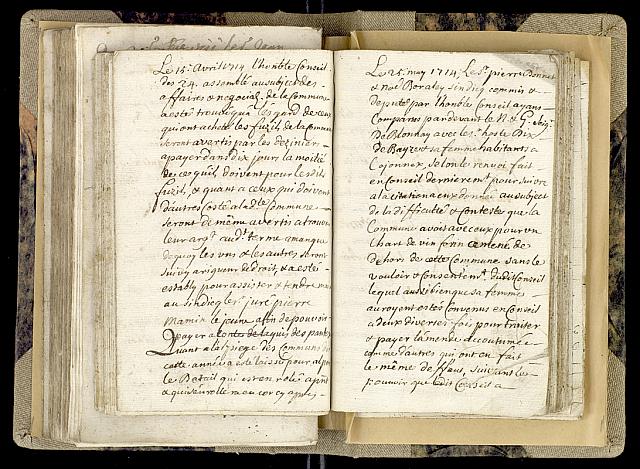 Le 15.e Avril 1714 lhonble Conseil
des 24. assemblé au subject des
affaires & negociaõ. de la Commune
a esté trouvé qua legard de ceux
qui ont acheté les fuzils de la Commune
seront avertis par les dezeniers
a payer dans dix jours la moitié
de ce quil doivent pour lesdits
fuzil, & quant a ceux qui doivent
dautres Coste a lad.te Commune
seront de même avertis a trouver
leur arg.t aud.t terme a manque
dequoy les vns & les autres seront
suivy a rigueur de droit, & a esté
estably pour assister & tendre main
au sindic ger. juré pierre
Mamin le jeune afin de pouvoir
payer
Quant a la piege des Communs
cette année a esté laissé pour
le Betail qui est enrolé
& qui s'enrollera
Le 25. may 1714, Les.r pierre Bonnet
& noé Boraley sindicq commis &
deputé par lhonble Conseil ayans
Comparus par devant le N. & G. Seig.r
de Blonhay avec les.r hoste Dix
de Bayze & sa femme habitants a
Cojonnex, selon le renvoi fait
en Conseil dernierem.t pour suivre
a la citation a eux donnée au subject
de la difficulté & Conteste que la
Commune avoit avec eux pour vn
Chart de vin forin
de hors de cette Commune sans le
vouloir & Consentem.t dudit Conseil
lequel aussi bien que sa femme
auroyent estés convenus en Conseil
a deux diverses fois pour traiter
& payer la mende accoutumée
comme dautres qui ont en fait
le même de ffeus, suivant les
pouvoir que ledit Conseil a